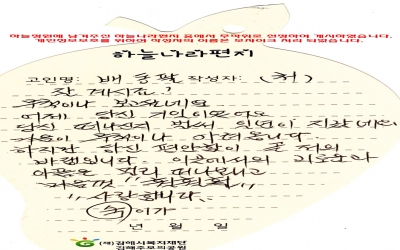 하늘정원에 남겨주신 하늘나라편지 중에서 무작위로 선정하여 게시하였습니다.
개인정보보호를 위하여 작성자의 이름은 모자이크 처리 되었습니다.
하늘나라편지
고인명: 배 동 작성자: (처)
잘 계시죠?
무척이나 보고싶네요
어제 당신 기일이었어요
당신 떠나보낸 벌써 일년이 지났네요
마음이 무척이나 서러웁니다.
하지만 당신 편안함이 울 처의
바램입니다. 이곳에서의 괴로움과
아픔은 멀리 떠나보내고
사랑합니다.
(처)이가
년 월 일
(재)김해시복지재단
김해추모의공원